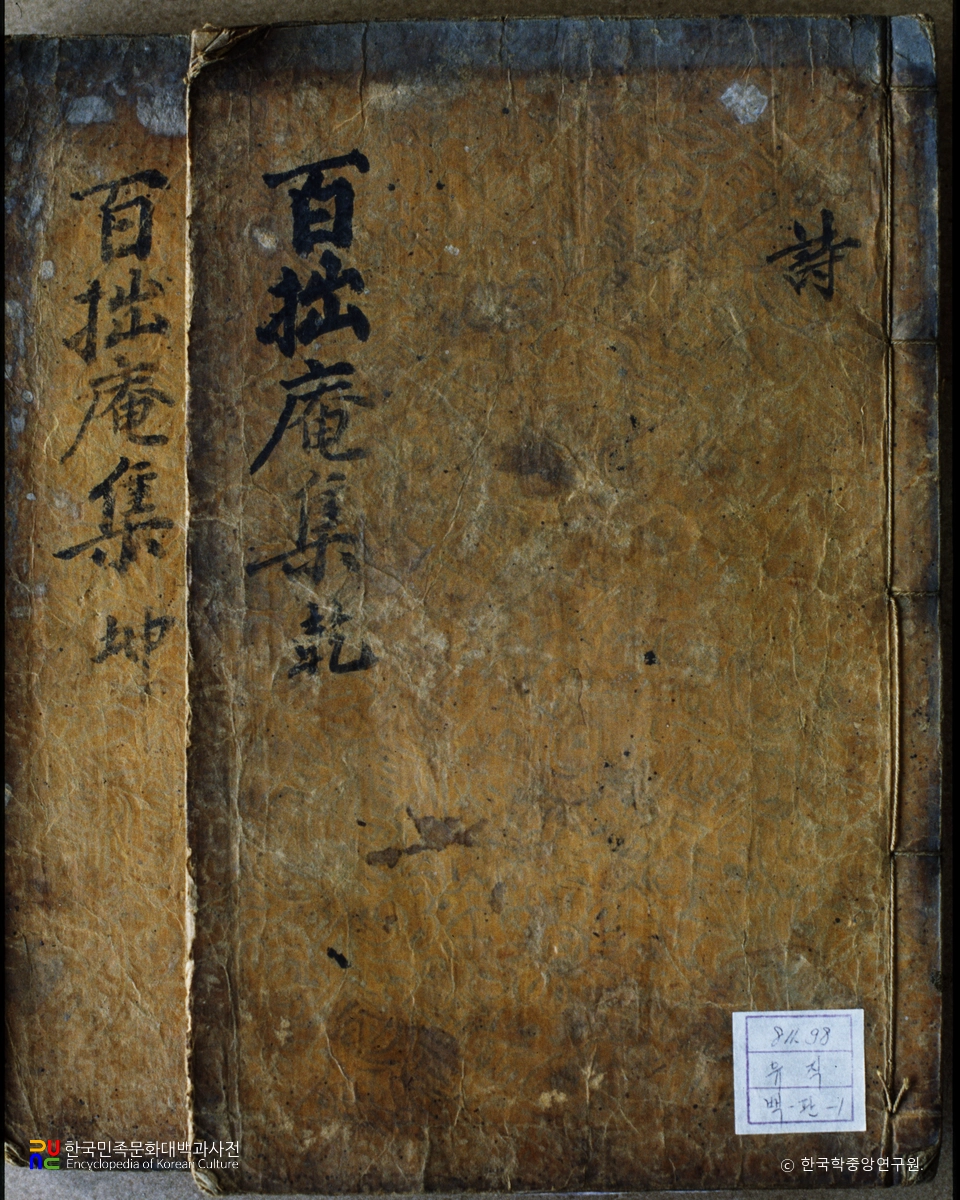 詩
百拙庵集 乾
百拙庵集 坤
811.98
유직
백-판-1
한국민족문화대백과사전
Encyclopedia of Korean Culture
© 한국학중앙연구원